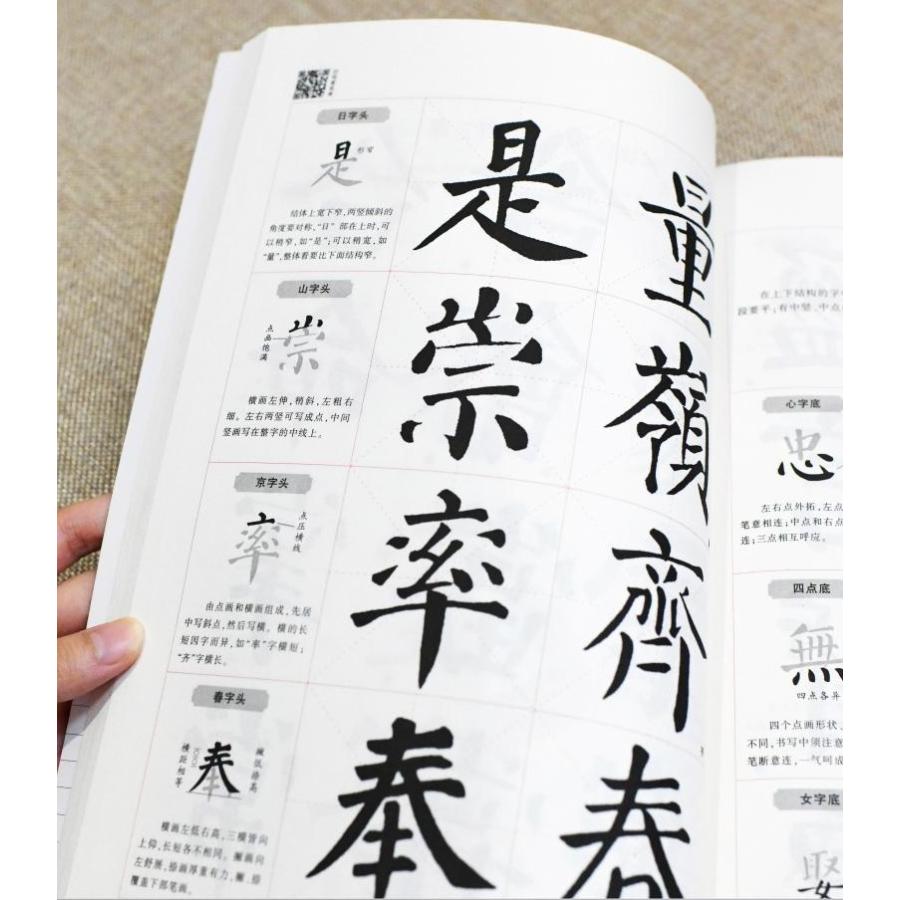 日字头
是
形窄
结体上宽下窄，两竖倾斜的
角度要对称，“日”部在上时，可
以稍窄，如“是”；可以稍宽，如
“量”，整体看要比下面结构窄。
是
量
山字头
崇
点画饱满
横画左伸，稍斜，左粗右
细。左右两竖可写成点，中间
竖画写在整字的中线上。
崇
嶺
京字头
率
点压横线
由点画和横画组成，先居
中写斜点，然后写横。横的长
短因字而异，如“率”字横短；
“齐”字横长。
率
齊
春字头
奉
横距相等
撇低捺高
横画左低右高，三横皆向
上仰，长短各不相同。撇画向
左舒展，捺画厚重有力，撇、捺
覆盖下部笔画。
奉
春
在上下结构的字
段要平；有中竖、中点
心字底
忠
左右点外拓，左点
笔意相连；中点和右点
连；三点相互呼应。
四点底
無
四点各异
四个点画形状，
不同，书写中须注意
笔断意连，一气呵成
女字底